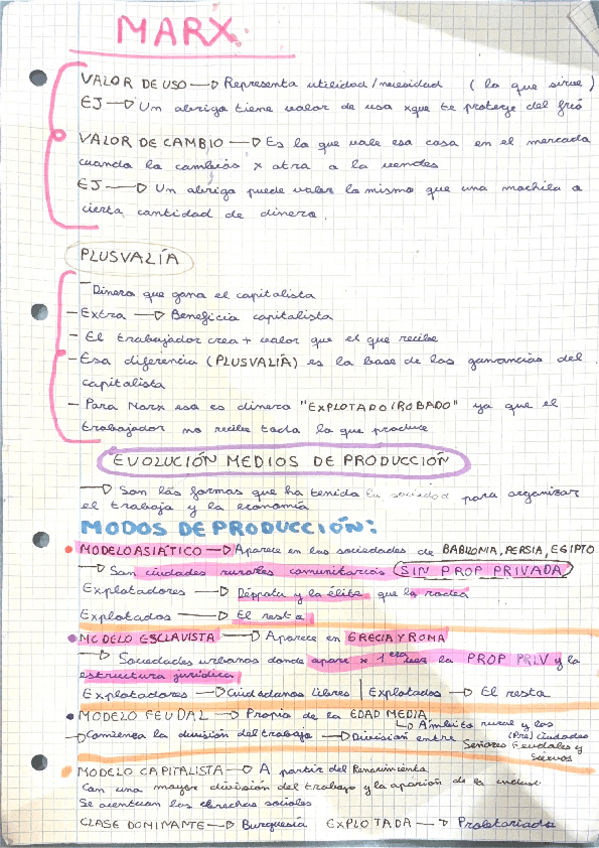 MARX.
VALOR DE USO → Representa utilidad/necesidad (lo que sirve)
EJ → Un abrigo tiene valor de uso xque te protege del frío
VALOR DE CAMBIO → Es lo que vale esa cosa en el mercado
cuando la cambias x otra o la vendes
EJ → Un abrigo puede valer lo mismo que una mochila o
cierta cantidad de dinero.
PLUSVALÍA
- Dinero que gana el capitalista
- Extra → Beneficio capitalista
- El trabajador crea + valor que el que recibe
- Esa diferencia (PLUSVALÍA) es la base de las ganancias del
capitalista
- Para Marx eso es dinero "EXPLOTADO/ROBADO" ya que el
trabajador no recibe todo lo que produce
EVOLUCIÓN MEDIOS DE PRODUCCIÓN
→ Son las formas que ha tenido la sociedad para organizar
el trabajo y la economía
MODOS DE PRODUCCIÓN:
MODELO ASIÁTICO → Aparece en las sociedades de BABILONIA, PERSIA, EGIPTO
→ Son ciudades rurales comunitarios (SIN PROP PRIVADA)
Explotadores → Déspota y la élite que lo rodea
Explotados → El resto
MODELO ESCLAVISTA → Aparece en GRECIA Y ROMA
→ Sociedades urbanas donde apare x 1era vez la PROP PRIV y la
estructura jurídica
Explotadores → Ciudadanos libres | Explotados → El resto
MODELO FEUDAL → Propio de la EDAD MEDIA
→ Ámbito rural y las
(Pre) Ciudades
→ Comienza la división del trabajo → División entre Señores Feudales y
Siervos
MODELO CAPITALISTA → A partir del Renacimiento
Con una mayor división del trabajo y la aparición de la
Se acentúan las brechas sociales
CLASE DOMINANTE → Burguesía EXPLOTADA → Proletariado